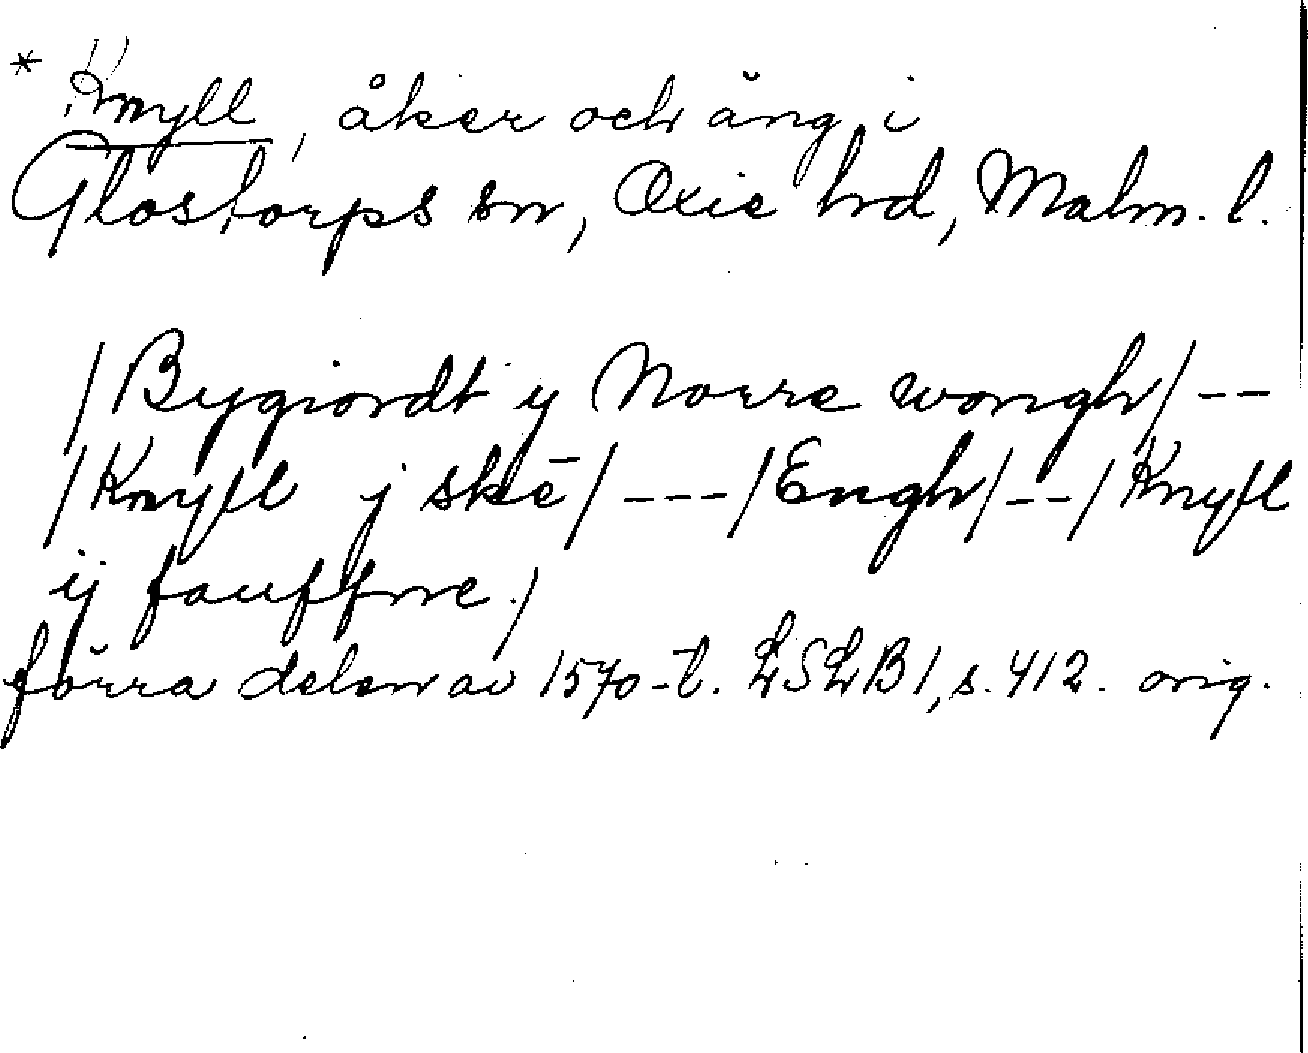 * Knyll, åker och äng i
Glostorps sn, Oxie hd, Malm. l.
/Bygiordt ij Norre wongh/ --
/Knyll j skē/ ---/Engh/--/Knyll
ij fauffne./
förra delen av 1570-t. LSLB1, s. 412. orig.